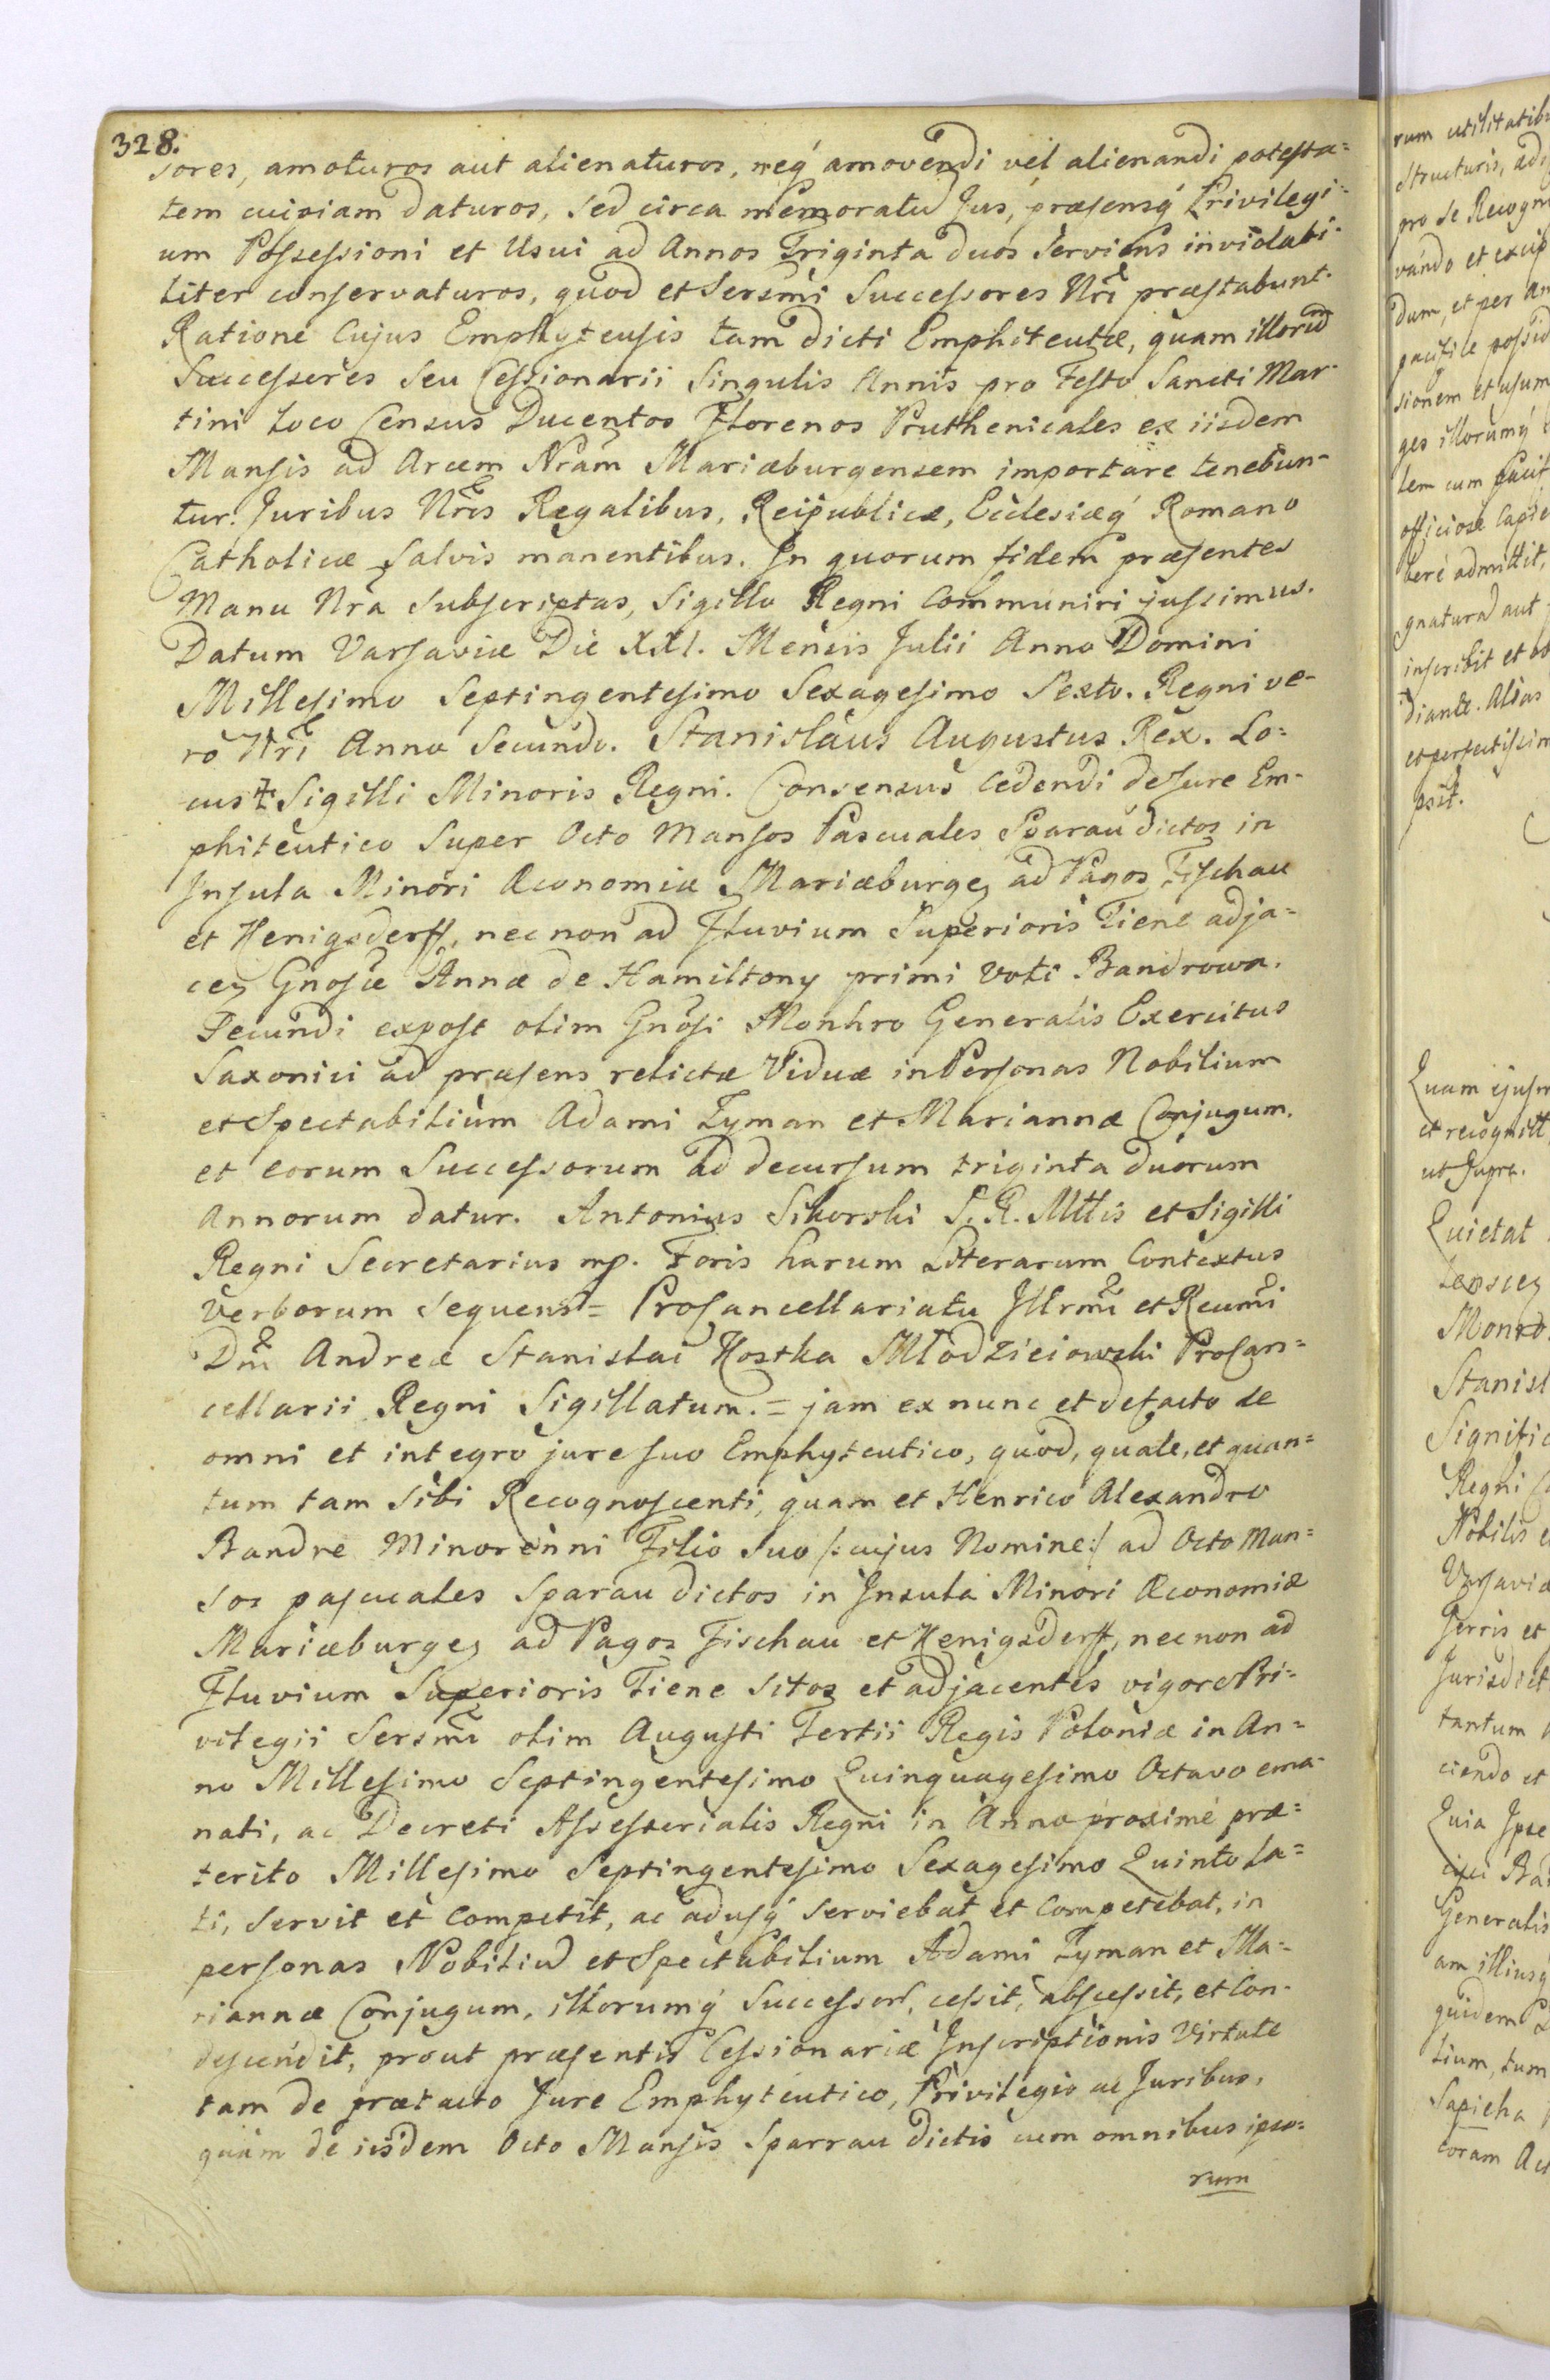 328.
sores, amoturos aut alienaturos, neq́ amovendi vel alienandi potesta=
tem cuipiam daturos, sed circa memoratũ Jus, præsensq́ Privilegi=
um Possessioni et Usui ad Annos Triginta duos serviens inviolabi-
liter conservaturos, quod et Sersm̃i Successores Nr̃i præstabunt.
Ratione Cujus Emphyteusis tam dicti Emphiteutæ, quam illorũ
Successores seu Cessionarii Singulis Annis pro Festo Sancti Mar-
tini loco Census Ducentos Florenos Pruthenicales ex iisdem
Mansis ad Arcem Nr̃am Mariæburgensem importare tenebun-
tur. Juribus Nr̃is Regalibus, Reipublicæ, Ecclesiæq́ Romano
Catholicæ salvis manentibus. In quorum fidem præsentes
Manu Nr̃a subscriptas, Sigillo Regni Communiri jussimus.
Datum Varsaviæ Die XXI. Mensis Julii Anno Domini
Millesimo Septingentesimo Sexagesimo Sexto. Regni ve-
ro Nr̃i Anno Secundo. Stanislaus Augustus Rex. Lo=
cus Sigilli Minoris Regni. Consensus Cedendi de Jure Em-
phiteutico Super Octo Mansos Pascuales Sparau dictos in
Insula Minori Œconomiæ Mariæburgeȝ ad Pagos Fischau
et Henigsderff, nec non ad Fluvium Superioris Tiene adja=
ceȝ Gnosæ Annæ de Hamiltony primi voti Bandrowa.
Secundi expost olim Gnosi Monhro Generalis Exercitus
Saxonici ad præsens relictæ Viduæ in Personas Nobilium
et Spectabilium Adami Tyman et Mariannæ Conjugum.
et eorum Successorum ad decursum triginta duorum
Annorum datur. Antonius Sikorski S. R. Mttis et Sigilli
Regni Secretarius mp. Foris harum Literarum Contextus
Verborum sequens = Procancellariatu Illrm̃i et Reverm̃i
Dn̄i Andreæ Stanislai Kostka Młodzieiowski Procan=
cellarii Regni Sigillatum. = jam ex nunc et de facto de
omni et integro jure suo Emphyteutico, quod, quale, et quan=
tum tam sibi Recognoscenti, quam et Henrico Alexandro
Bandre Minorenni Filio suo /: cujus Nomine :/ ad Octo Man=
sos pascuales Sparau dictos in Insula Minori Œconomiæ
Mariæburgeȝ ad Pagos Fischau et Henigsderff, nec non ad
Fluvium Superioris Tiene sitos et adjacentes vigore Pri=
vilegii Sersm̃i olim Augusti Tertii Regis Poloniæ in An=
no Millesimo Septingentesimo Quinquagesimo Octavo ema-
nati, ac Decreti Assessorialis Regni in Anno proxime præ=
terito Millesimo Septingentesimo Sexagesimo Quinto La=
ti, servit et competit, ac adusq́ serviebat et competebat, in
personas Nobiliũ et Spectabilium Adami Tyman et Ma=
riannæ Conjugum, illorumq́ Successorũ, cessit, abscessit, et Con-
descendit, prout præsentis Cessionariæ Inscriptionis Virtute
tam de prætacto Jure Emphyteutico, Privilegio ac Juribus,
quàm de iisdem Octo Mansis Sparrau dictis cum omnibus ipso=
rum
rum utilitatib
structuris, ad
pro se Recogn
vando et excip
dum, et per an
pacifice possid
sionem et usum
ges illorumq́
tem cum facit
officiose Capie
bere admittit,
gnaturã aut
inscribit et
diante. Alias
et perfectissim
psit.
Quam ejusm
et recognit
ut supra.
Quietat
Monro
Stanisl
Signific
Regni
Nobilis
Varsaviæ
Terris et
Jurisdict
tantum
ciendo et
Quia Ipse
Generalis
am illiusq
quidem
tium, tum
Sapieha
coram Act